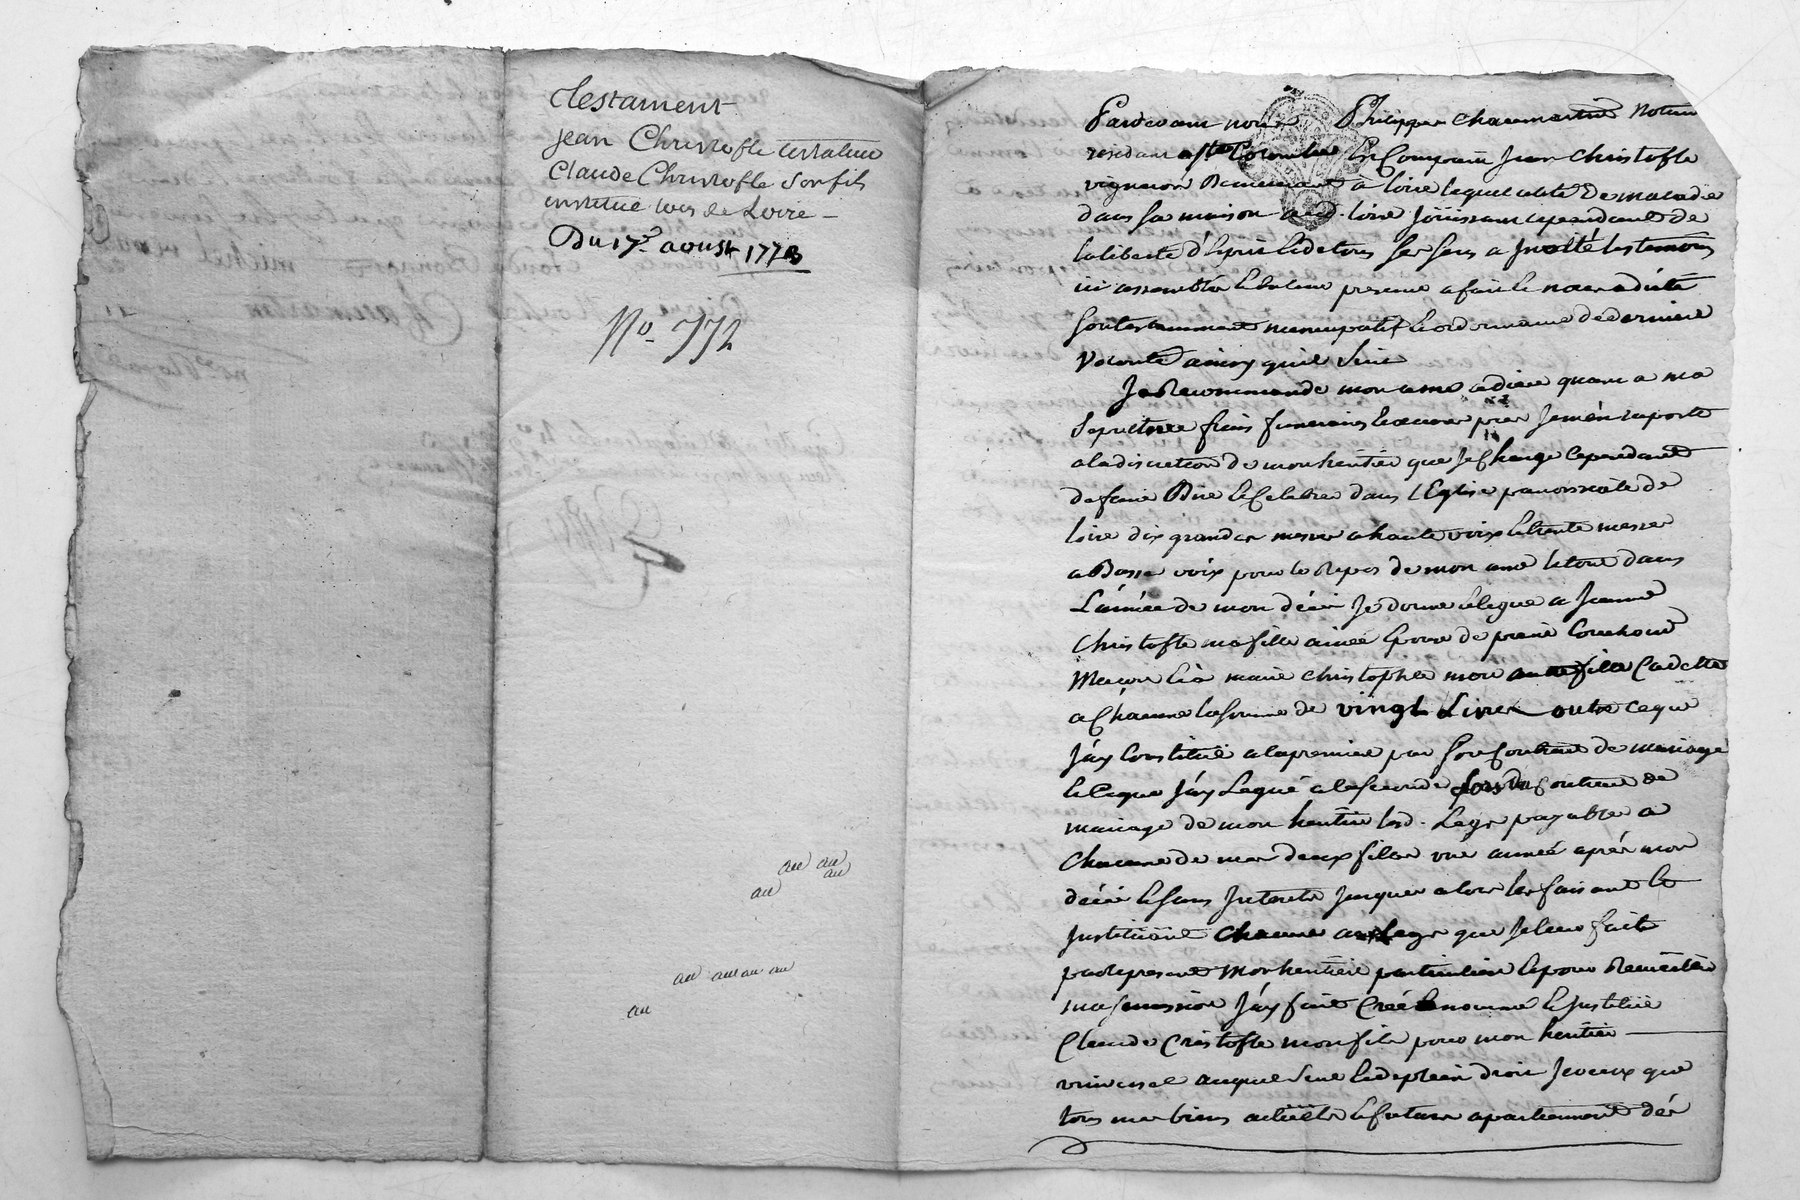 Testament
jean Christofle testateur
Claude Christofle Son fils
institué tous de Loire
Du 17e aoust 1773
No. 772
au au
au
au
au au au au
au
Pardevant nous Philipper Chaumartin Notaire
residant a ste Colombe Est Comparu Jean Christofle
vigneron Demeurant à loire lequel alité De maladie
dans sa maison aud. loire joüissant cependant de
la liberté d'Esprit Et de tous ses sens a invité les temoins
ici assemblés Et le notaire
son testament nuncupatif Et ordonnance de derniere
volonté ainsy quil Suit
Je Recommande mon ame a dieu quant a ma
Sepulture frais funeraires Et œuvres pies Je m'en raporte
a la discretion de mon heritier que Je Charge Cependant
de faire Dire Et Celebrer dans L'Eglise paroissiale de
loire dix grandes messes a haute voix Et trente messes
a Basse voix pour le Repos de mon ame le tout dans
L'année de mon décés Je donne Et legue a Jeanne
Christofle ma fille ainée Epouse de
Macon Et a marie Christophle mon autre fille Cadette
a Chacune la somme de vingt Livres outre ce que
J'ay Constitué a la premiere par son Contrat de mariage
Et ce que J'ay Legué a la seconde Contrat de
mariage de mon heritier lesd. Legs payable a
Chacune de mes deux filles une année aprés mon
décés Et sans Interets Jusques alors les faisant Et
Instituant Chacune au Legs que Je leur fait
par Ces presentes Mon heritiere particuliere Et pour Recueillir
ma sucession J'ay fait Créé Et nommé Et Institüé
Claude Cristofle mon fils pour mon heritier
universel auquel Seul Et de plein droit Je veux que
tous mes biens actuels Et futurs apartiennent dés